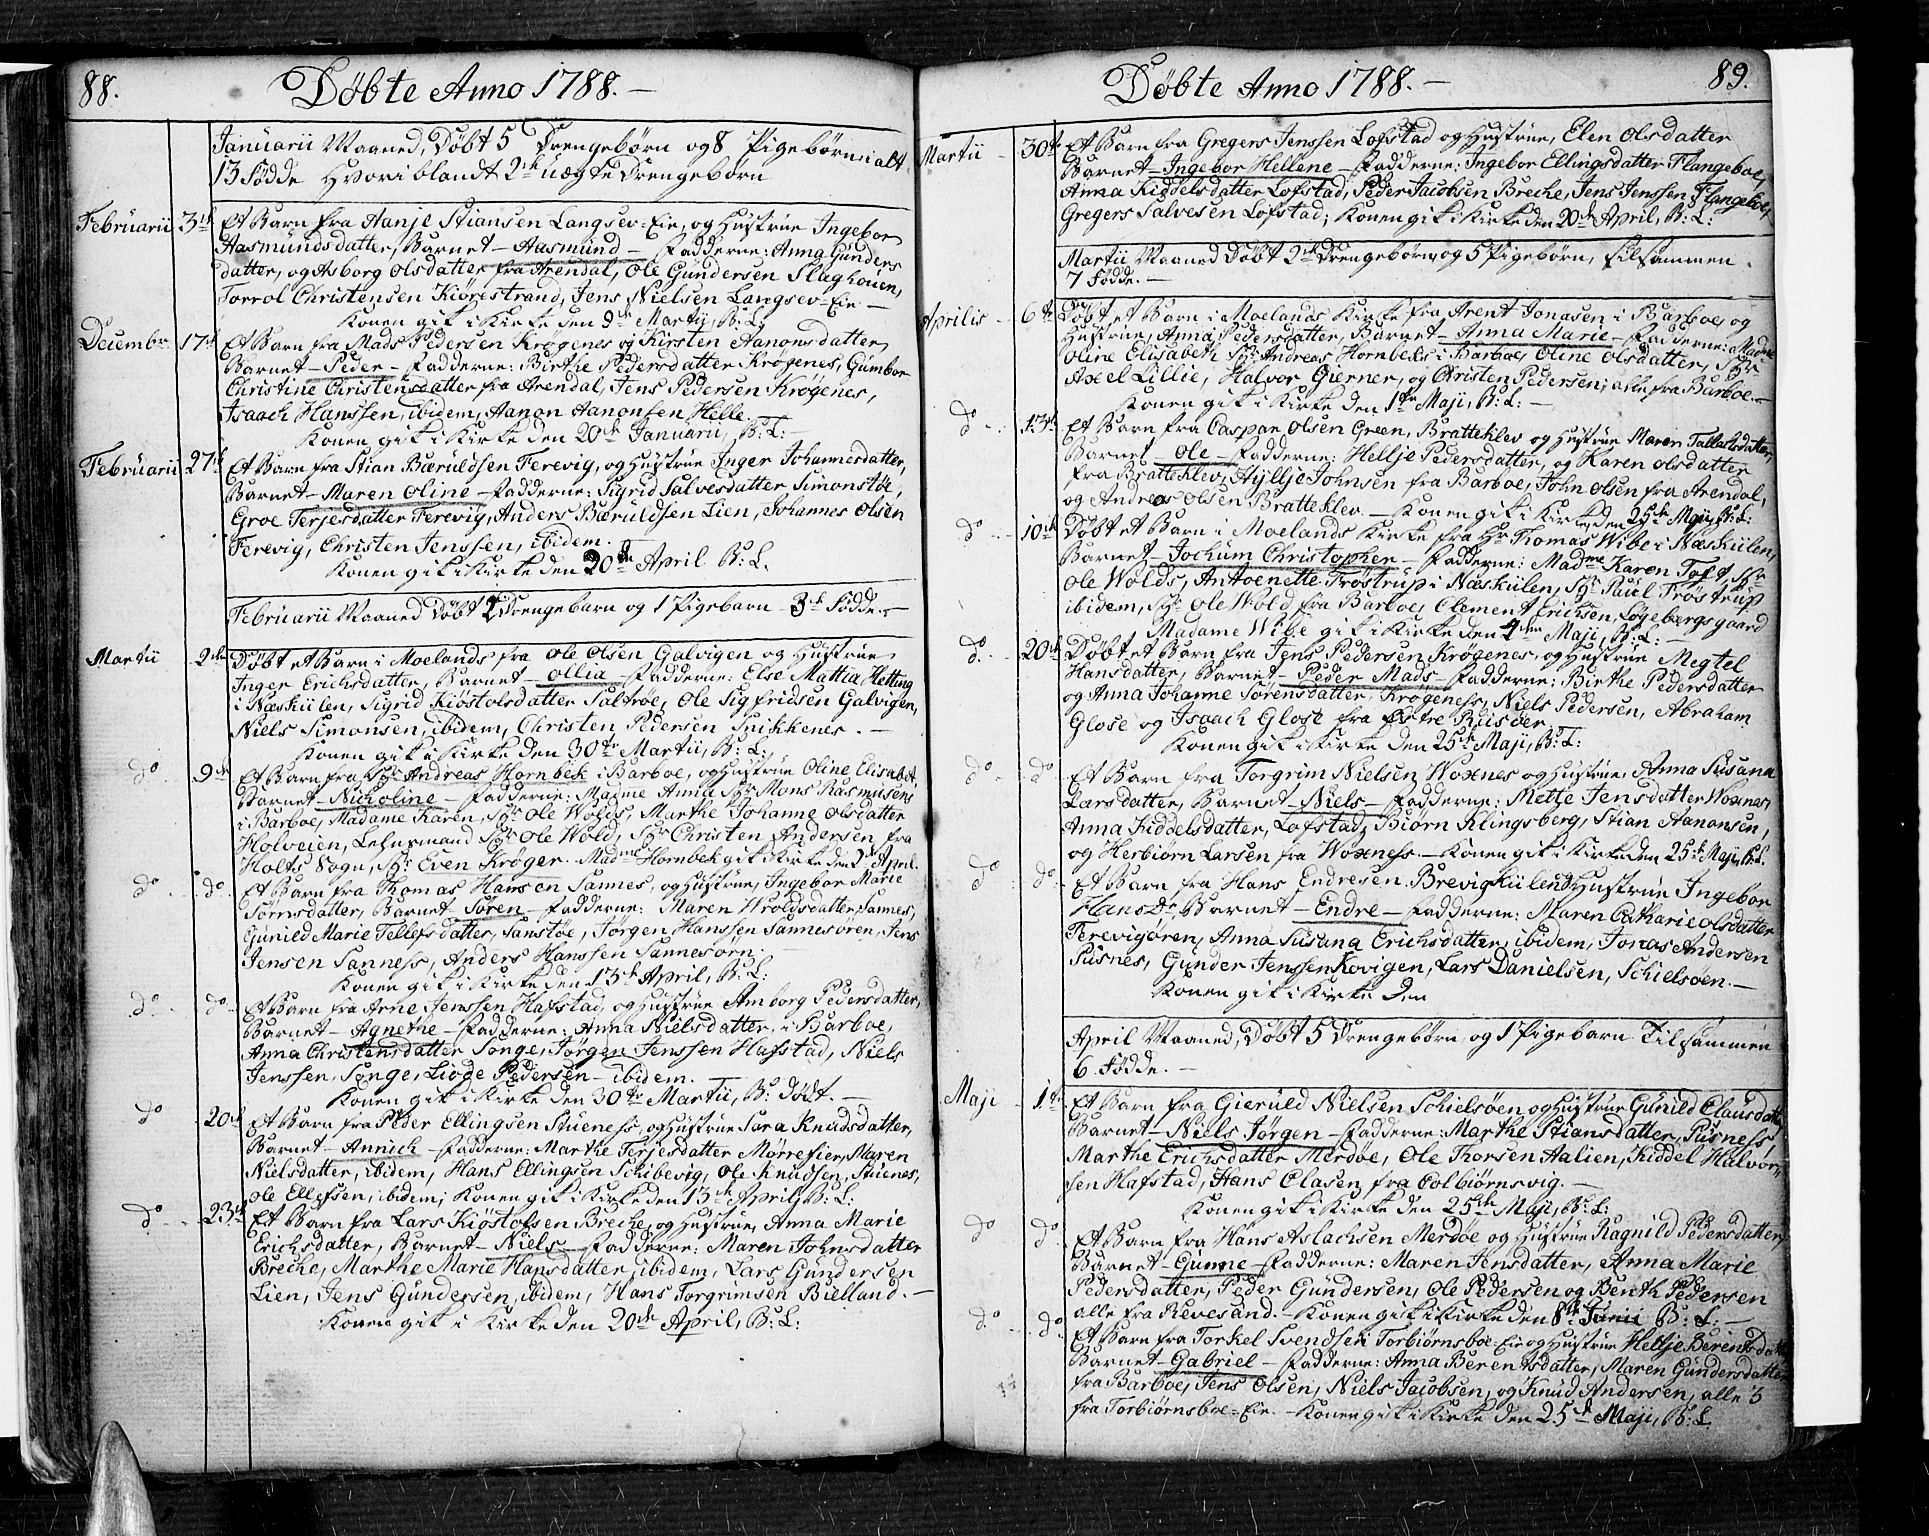 88.
Döbte Anno 1788.—
Januarii Maaned, Döbt 5 Drengebörn og 8 Pigebörn i alt
13 Födde Hvoriblandt 2de uægte Drengebörn
Februarii 3die Et Barn fra Aanje Stiansen Langsev-Eie, og Hustrue Ingebor
Aasmundsdatter, Barnet — Aasmund — Fadderne: Anna Gunders
datter, og Asborg Olsdatter fra Arendal, Ole Gundersen Slaghouen,
Torrol Christensen Kiörestrand, Jens Nielsen Langsev-Eie —
Konen gik i Kirke den 9de Martij, B: L:
Decembr. 17de Et Barn fra Mads Pedersen Krögenes og Kirsten Aanonsdatter,
Barnet — Peder — Fadderne: Birthe Pedersdatter Krögenes, Gumbor
Christine Christensdatter fra Arendal, Jens Pedersen Krögenes,
Isaach Hanssen, ibidem, Aanon Aanonsen Helle.
Konen gik i Kirke den 20de Januarii, B: L: —
Februarii 27de Et Barn fra Stian Bæruldsen Ferevig, og Hustrue Inger Johannesdatter,
Barnet — Maren Oline — Fadderne: Sigrid Salvesdatter Simonstöe,
Groe Terjesdatter Ferevig, Anders Bæruldsen Lien, Johannes Olsen
Ferevig, Christen Jenssen, ibidem.
Konen gik i Kirke den 20de April B: L.
Februarii Maaned Döbt 2 Drengebarn og 1 Pigebarn 3de Födde. —
Martii 2den Döbt et Barn i Moelands fra Ole Olsen Galvigen og Hustrue
Inger Erichsdatter, Barnet — Ollia — Fadderne: Else Mattia Hetting
i Næskiilen, Sigrid Kiöstolsdatter Saltröe, Ole Sigfridsen Galvigen,
Niels Simonsen, ibidem, Christen Pedersen Snikkenes. —
Konen gik i Kirke den 30te Martii, B: L:
do 9de Et Barn fra Sr Andreas Hornbek i Barboe, og Hustrue Oline Elisabet,
Barnet — Nicholine — Fadderne: Madme Anna Sr Mons Rasmusens
i Barboe, Madame Karen, Sr Ole Wolds, Marthe Johanne Olsdatter
Holveien, Lehnsmand Sr Ole Wold, Sr Christen Andersen, fra
Holts Sogn, Sr Even Kröger. Madme Hornbek gik i Kirke den 2de April.
do do Et Barn fra Thomas Hansen Sannes, og Hustrue, Ingebor Marie
Sörnsdatter, Barnet Sören — Fadderne: Maren Wroldsdatter, Sannes,
Gunild Marie Tellefsdatter, Sanstöe, Jörgen Hanssen Sannesören, Jens
Jensen Sanness, Anders Hanssen Sannesörn.
Konen gik i Kirke den 13de April, B: L:
do do Et Barn fra Arne Jenssen Hafstad, og Hustrue Amborg Pedersdatter,
Barnet — Agnethe — Fadderne: Anna Nielsdatter, i Barboe,
Anna Christensdatter Songe, Jörgen Jenssen Hafstad, Niels
Jenssen, Songe, Liöde Pedersen — ibidem.
Konen gik i Kirke den 30te Martii, B: Dödt. —
do 20de Et Barn fra Peder Ellingsen Stueness, og Hustrue Sara Knudsdatter,
Barnet — Annich — Fadderne: Marthe Terjesdatter Mörrefier, Maren
Nielsdatter, ibidem, Hans Ellingsen Schibevig, Ole Knudsen, Stuenes,
Ole Ellefsen, ibidem; Konen gik i Kirke den 13de April, B: L:
do 23de Et Barn fra Lars Kiöstolsen Breche, og Hustrue, Anna Marie
Erichsdatter, Barnet — Niels — Fadderne: Maren Johnsdatter
Breche, Marthe Marie Hansdatter, ibidem, Lars Gundersen
Lien, Jens Gundersen, ibidem, Hans Torgrimsen Bielland. —
Konen gik i Kirke den 20de April, B: L:
89.
Döbte Anno 1788.—
Martii 30te Et Barn fra Gregers Jenssen Lofstad og Hustrue, Elen Olsdatter
Barnet — Ingebor Hellene — Fadderne: Ingebor Ellingsdatter Flangeboe,
Anna Kiddelsdatter Lofstad, Peder Jacobsen Breche, Jens Jenssen Flangeboe,
Gregers Salvesen Lofstad; Konen gik i Kirke den 20de April, B: L:
Martii Maaned Döbt 2de Drengebörn, og 5 Pigebörn, tilsammen
7 Födde. —
Aprilis 6te Döbt et Barn i Moelands Kirke fra Arent Jonasen i Barboe, og
Hustrue, Anna Pedersdatter, Barnet — Anna Marie — Fadderne: Madme
Oline Elisabeth Sr Andreas Hornbeks i Barboe, Oline Olsdatter, Sr
Axel Lillie, Halvor Gierner, og Christen Pedersen; alle fra Barboe. —
Konen gik i Kirke den 1ste Maji, B: L: —
do 13de Et Barn fra Caspar Olsen Green, Bratteklev og Hustrue Maren Tallaksdatter,
Barnet — Ole — Fadderne: Hellje Pedersdatter, og Karen Olsdatter
fra Bratteklev, Hyllje Johnsen fra Barboe, John Olsen fra Arendal,
og Andreas Olsen Bratteklev — Konen gik i Kirke den 25de Maji, B: L:
do 10de Döbt et Barn i Moelands Kirke fra Hr Thomas Wibe i Næskiilen,
Barnet — Jochum Christopher — Fadderne: Madme Karen Toft, Sr
Ole Wolds, Antoenette Fröstrup i Næskiilen, Sr Paul Fröstrup
ibidem, Sr Ole Wold fra Barboe, Clement Erichsen, Lögebergsgaard
Madame Wibe gik i Kirke den 4den Maji, B: L: —
do 20de Döbt et Barn fra Jens Pedersen Krögenes, og Hustrue Megtel
Hansdatter, Barnet — Peder Mads — Fadderne: Birthe Pedersdatter
og Anna Johanne Sörensdatter, Krögeness, Niels Pedersen, Abraham
Glose og Isaach Glose fra Östre Riisöer.
Konen gik i Kirke den 25de Maji, B: L:
do do Et Barn fra Torgrim Nielsen Woxnes og Hustrue, Anna Susana
Larsdatter, Barnet — Niels — Fadderne: Mette Jensdatter Woxnes,
Anna Kiddelsdatter, Lofstad, Biörn Klingsberg, Stian Aanonsen,
og Herbiörn Larsen fra Woxness. — Konen gik i Kirke den 25de Maji, B: L.
do do Et Barn fra Hans Endresen Brevigkiilen og Hustrue Ingebor
HansDr, Barnet — Endre — Fadderne: Maren Catharie Olsdatter
Ferevigören, Anna Susana Erichsdatter, ibidem, Jonas Andersen
Pusnes, Gunder Jenssen Kovigen, Lars Danielsen, Schielsöen. —
Konen gik i Kirke den
April Maaned, Döbt 5 Drengebörn, og 1 Pigebarn Tilsammen
6. Födde. —
Maji 1ste Et Barn fra Gieruld Nielsen Schielsöen og Hustrue Gunild Clausdatter
Barnet — Niels Jörgen — Fadderne: Marthe Stiansdatter, Pusness
Marthe Erichsdatter Merdöe, Ole Thorsen Aalien, Kiddel Halvor-
sen Hafstad, Hans Clasen fra Colbiörnsvig. —
Konen gik i Kirke den 25de Maji, B: L:
do do Et Barn fra Hans Aslachsen Merdöe og Hustrue Ragnild Pedersdatter,
Barnet — Gunne — Fadderne: Maren Jensdatter, Anna Marie
Pedersdatter, Peder Gundersen, Ole Pedersen og Benth Pedersen
alle fra Revesand. — Konen gik i Kirke den 8de Junii B: L: —
do do Et Barn fra Torkel Svendsen Torbiörnsboe-Eie og Hustrue Hellje Berentsdatter
Barnet — Gabriel — Fadderne: Anna Berentsdatter, Maren Gundersdatter
fra Barboe, Jens Olsen, Niels Jacobsen, og Knud Andersen, alle 3
fra Torbiörnsboe-Eie. — Konen gik i Kirke den 25de Maji, B: L